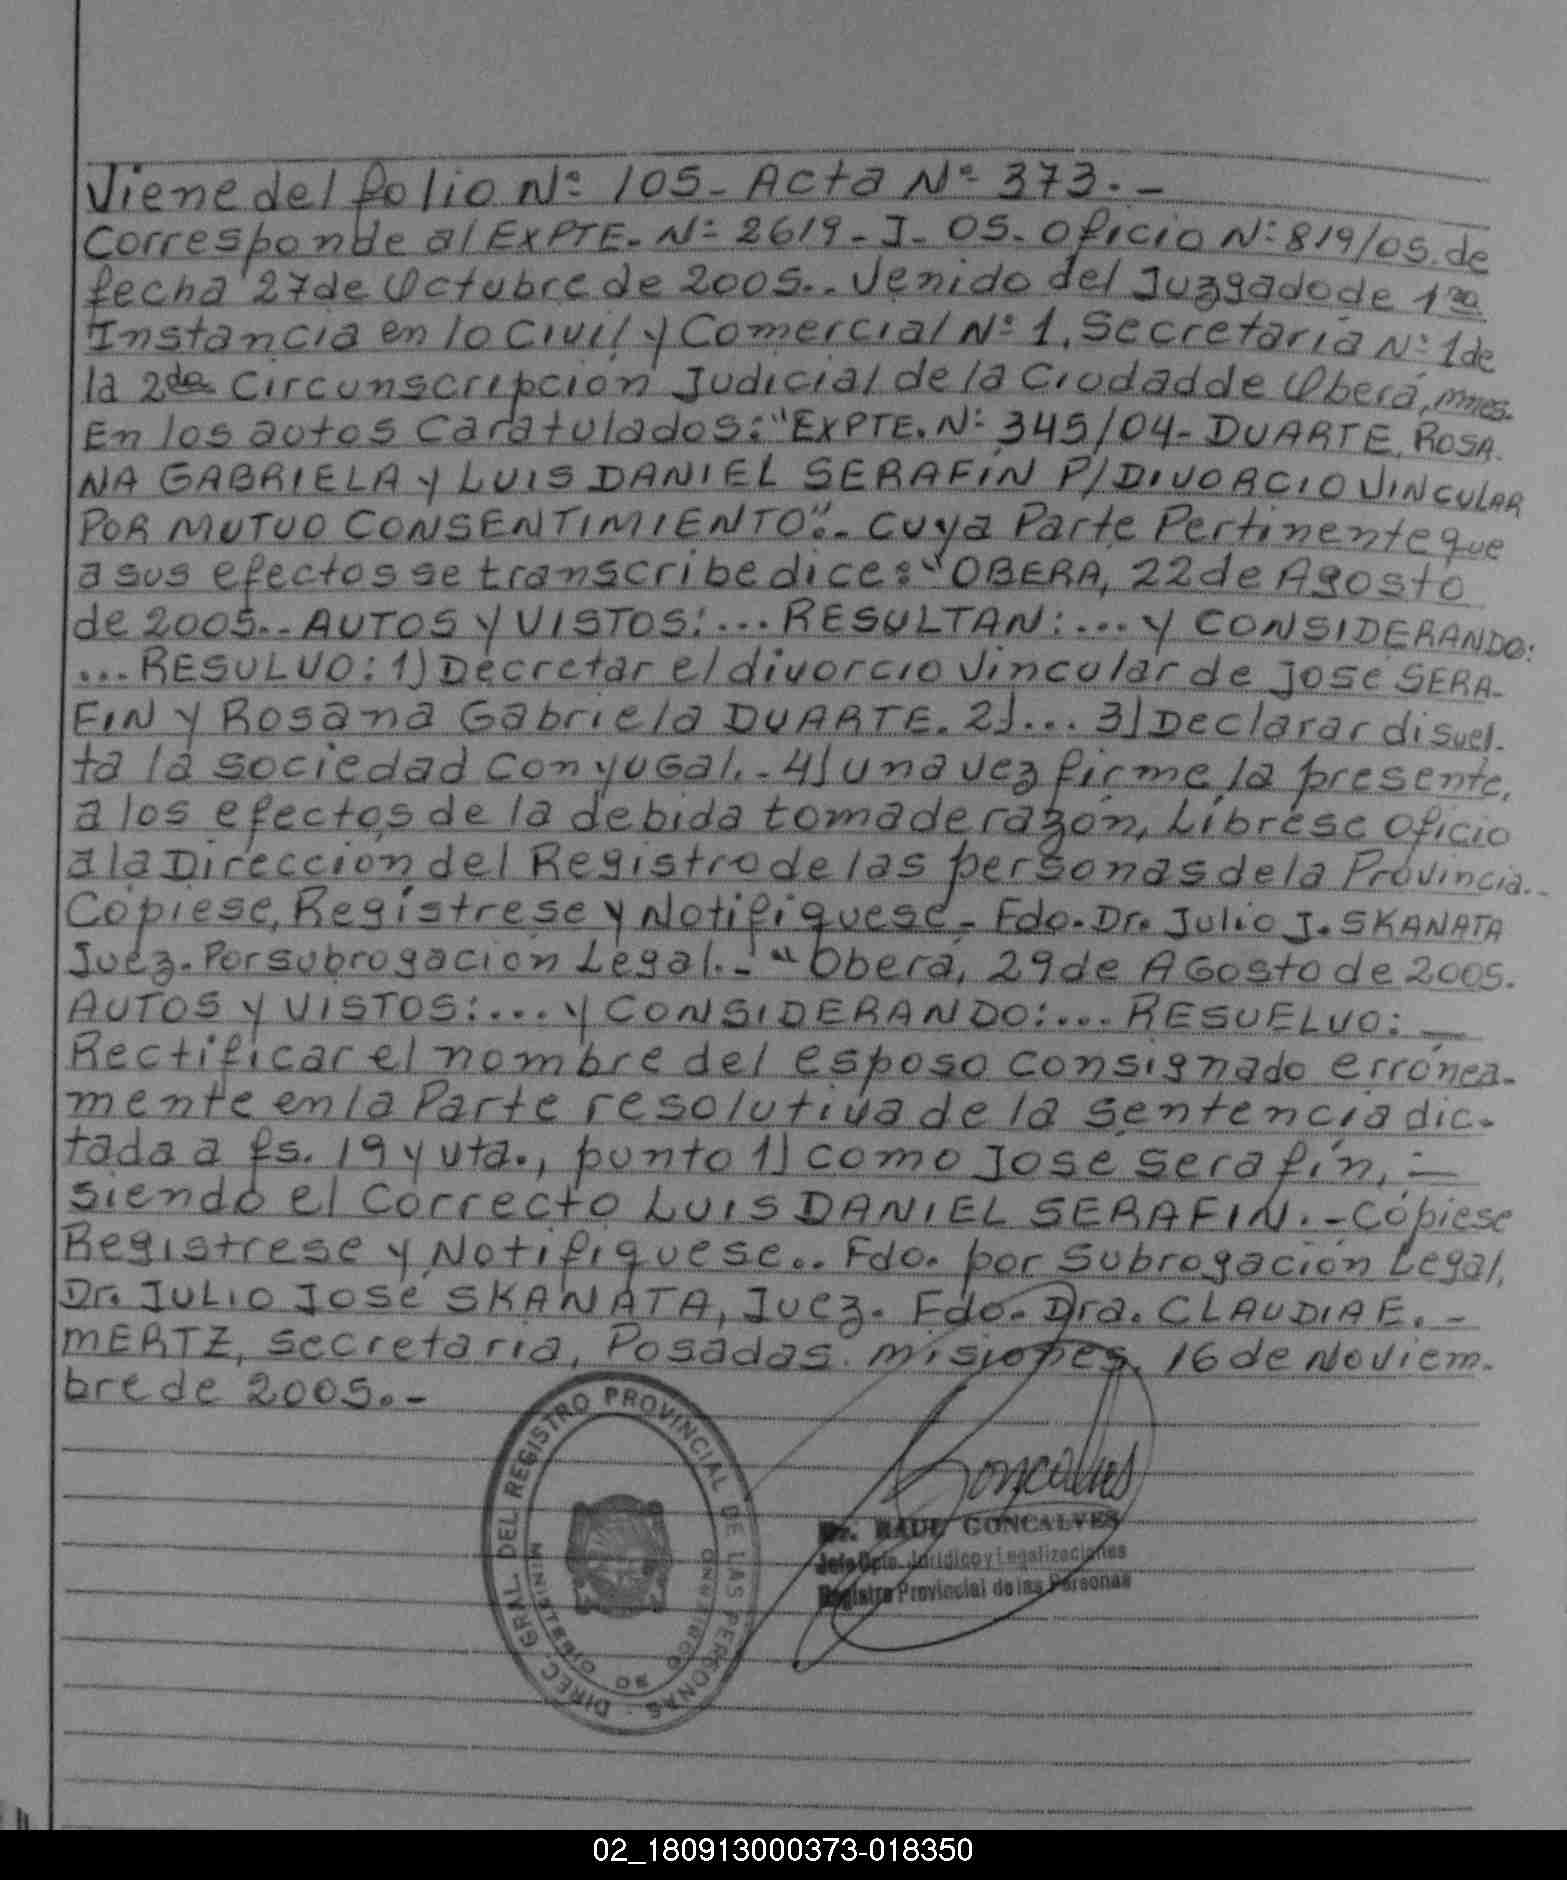 Viene del folio Nº 105- Acta Nº 373.-
Corresponde al EXPTE. Nº 2619-J-05- Oficio Nº 819/05. de
fecha 27 de Octubre de 2005.- Venido del Juzgado de 1ra
Instancia en lo Civil y Comercial Nº 1, Secretaría Nº 1 de
la 2da Circunscripción Judicial de la Ciudad de Oberá, mnes.
En los autos Caratulados: "EXPTE. Nº 345/04- DUARTE, ROSA-
NA GABRIELA y LUIS DANIEL SERAFIN P/DIVORCIO VINCULAR
POR MUTUO CONSENTIMIENTO".- Cuya Parte Pertinente que
a sus efectos se transcribe dice: "OBERA, 22 de Agosto
de 2005.- AUTOS y VISTOS:... RESULTAN:... y CONSIDERANDO:
...RESULVO: 1) Decretar el divorcio Vincular de José SERA-
FIN y Rosana Gabriela DUARTE. 2)... 3) Declarar disuel-
ta la sociedad Conyugal.- 4) una vez firme la presente,
a los efectos de la debida toma de razón, Líbrese Oficio
a la Dirección del Registro de las personas de la Provincia.-
Cópiese, Regístrese y Notifíquese- Fdo. Dr. Julio J. SKANATA
Juez. Por subrogación Legal.- "Oberá, 29 de AGosto de 2005.
AUTOS y VISTOS:... y CONSIDERANDO:... RESUELVO: —
Rectificar el nombre del esposo consignado errónea-
mente en la Parte resolutiva de la sentencia dic-
tada a fs. 19 y vta., punto 1) como José Serafín, —
siendo el Correcto LUIS DANIEL SERAFIN.- Cópiese
Registrese y Notifíquese.. Fdo. por Subrogación Legal,
Dr. JULIO JOSÉ SKANATA, Juez. Fdo. Dra. CLAUDIA E. -
MERTZ, secretaria, Posadas. misiones, 16 de Noviem-
bre de 2005.-
DIREC. GRAL. DEL REGISTRO PROVINCIAL DE LAS PERSONAS
MINISTERIO DE GOBIERNO
Goncalves
Dr. RAUL GONCALVES
Jefe Dpto. Jurídico y Legalizaciones
Registro Provincial de las Personas
02_180913000373-018350